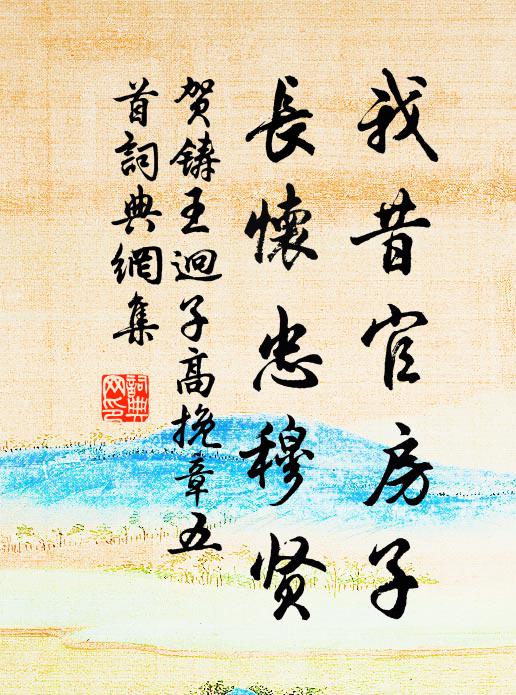 我昔官房子
長懷忠穆贤
贺鑄王迥子高挽章五
首詞典網集
詞典网印